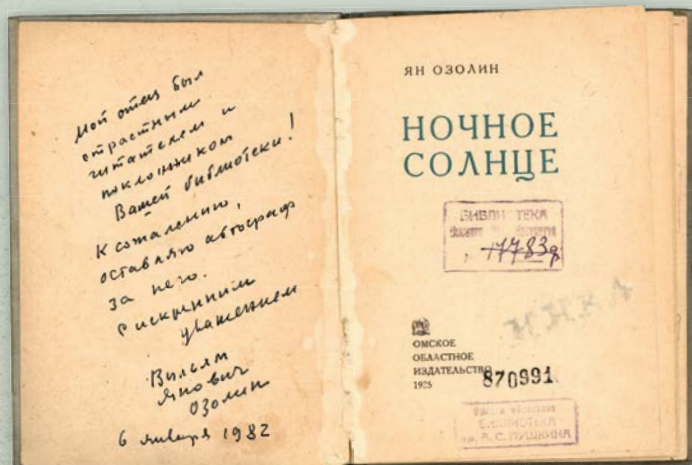 Мой отец был
страстным
читателем и
поклонником
Вашей библиотеки!
К сожалению,
оставляю автограф
за него.
С искренним
уважением
Вильям
Янович
Озолин
6 января 1982
ЯН ОЗОЛИН
НОЧНОЕ
СОЛНЦЕ
БИБЛИОТЕКА
17783д
ОМСКОЕ
ОБЛАСТНОЕ
ИЗДАТЕЛЬСТВО
870991
БИБЛИОТЕКА
им. А. С. ПУШКИНА